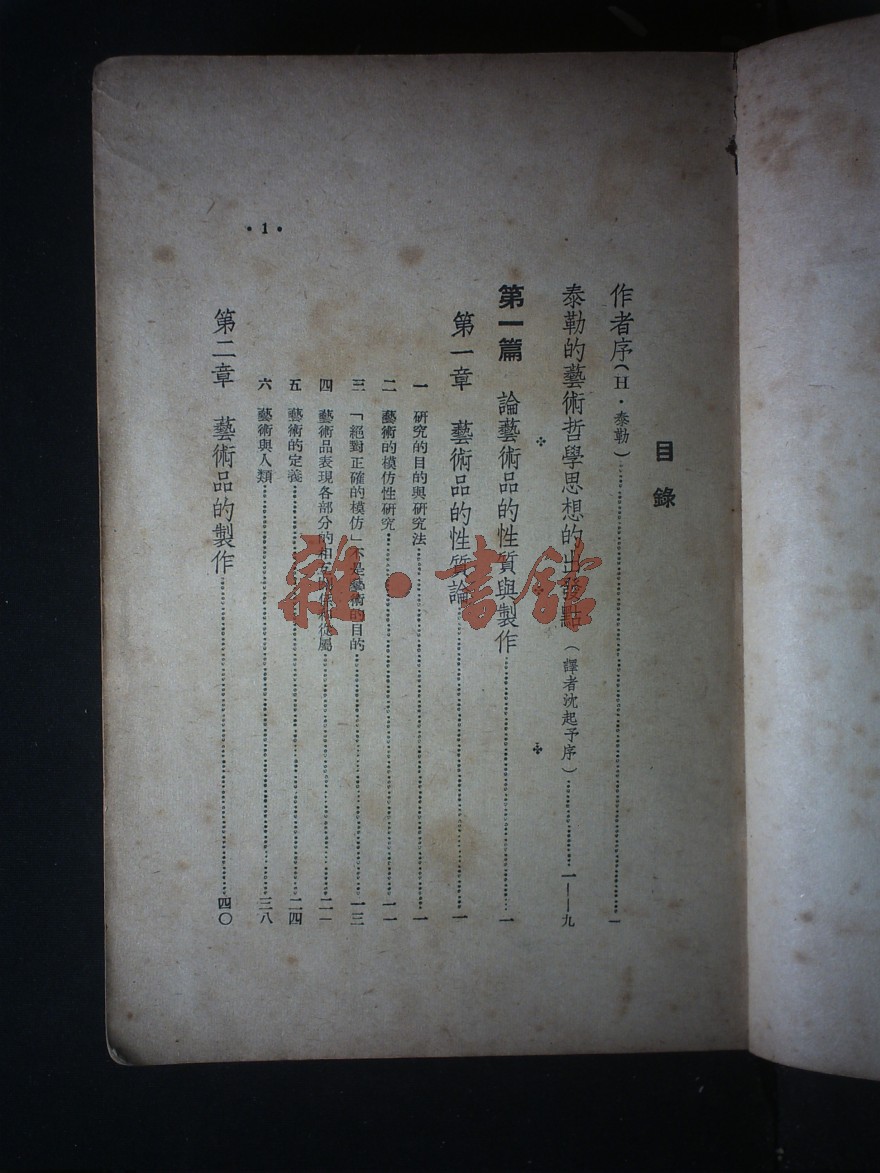 目錄
作者序(H·泰勒)……一
泰勒的藝術哲學思想的出發點(譯者沈起予序)……一——九
第一篇 論藝術品的性質與製作……一
第一章 藝術品的性質論……一
一 研究的目的與研究法……一
二 藝術的模仿性研究……一一
三 「絕對正確的模仿」不是藝術的目的……一三
四 藝術品表現各部分的相互關係和從屬……二一
五 藝術的定義……二四
六 藝術與人類……三八
第二章 藝術品的製作……四〇
·1·
雜·書館